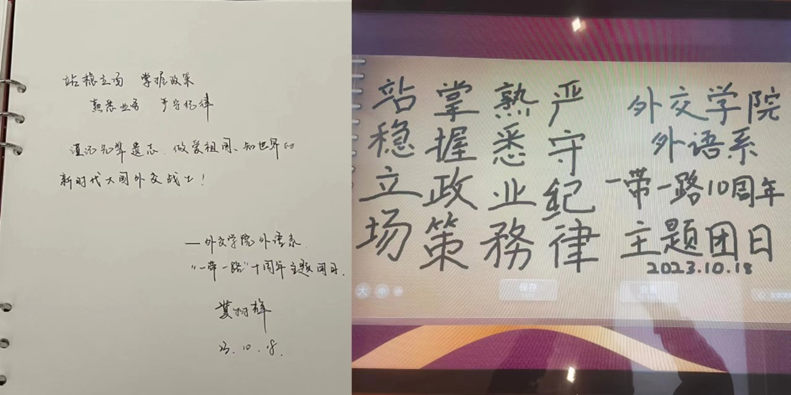 站稳立场 掌握政策
熟悉业务 严守纪律
谨记先辈遗志、做爱祖国、知世界的
新时代大国外交战士！
——外交学院外语系
“一带一路”十周年主题团日.
23.10.18.
站稳立场
掌握政策
熟悉业務
严守纪律
外交学院
外语系
一带一路10周年
主题团日
2023.10.18
大
中
保存